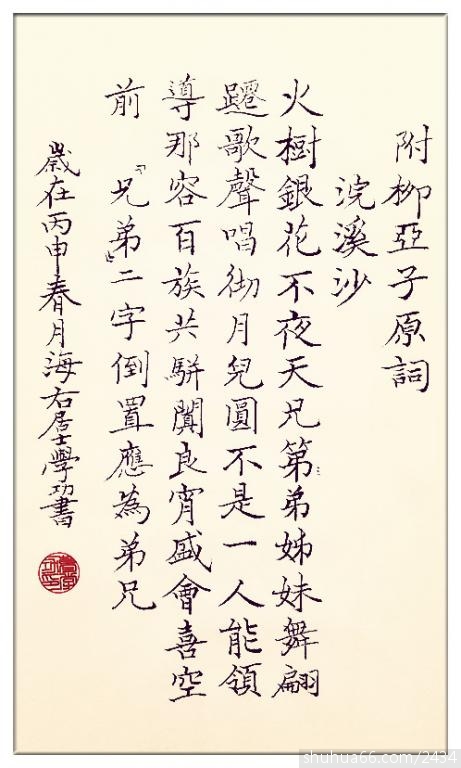 附柳亞子原詞
浣溪沙
火樹銀花不夜天兄第弟姊妹舞翩
躚歌聲唱彻月兒圓不是一人能領
導那容百族共駢闐良宵盛會喜空
前 「兄弟」二字倒置應為弟兄
歲在丙申春月海右居士學功書
shuhua66.com/2434